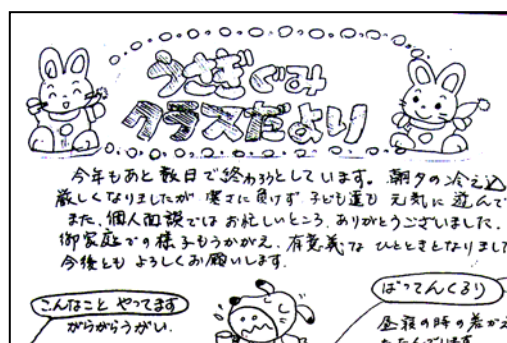 うさぎぐみ
クラスだより
今年もあと数日で終わろうとしています。朝夕の冷え込
厳しくなりましたが寒さに負けず子ども達も元気に遊んで
また、個人面談ではお忙しいところ、ありがとうございました。
御家庭での様子もうかがえ、有意義なひとときとなりまし
今後ともよろしくお願いします。
こんなこと やってます
がらがらうがい。
ばってんくるり
昼寝の時の着がえ